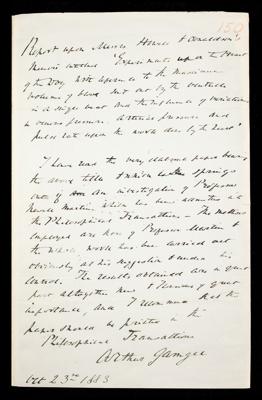 150
Report upon Messrs Howell & Donaldson's
Memoir entitled "Experiments upon the Heart
of the Dog with reference to the maximum
volume of blood sent out by the ventricle
in a single beat and the influence of variations
in venous pressure, arterial pressure and
pulse rate upon the work done by the heart"
I have read the very elaborate paper bearing
the above title & which springs
out of an investigation of Professor
Newell Martin, which has been admitted into
the Philosophical Transactions. The methods
employed are those of Professor Martin &
the whole work has been carried out
obviously at his suggestion & under his
control. The results obtained are in great
part altogether new & of great
importance, and I recommend that the
paper should be printed in the
Philosophical Transactions
Arthur Gamgee
Oct 23rd 1883